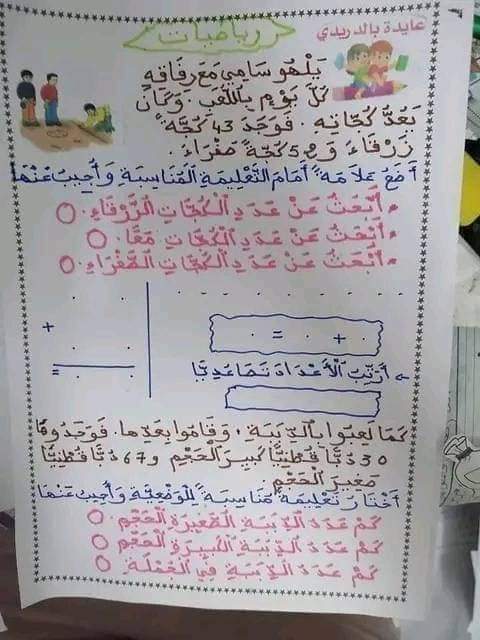 عايدة بالدريدي
رياضيات
يَلْهُو سَامِي مَعَ رِفَاقِهِ
كُلَّ يَوْمٍ بِاللَّعِبِ. وَكَانَ
يَعُدُّ كُجَّاتِهِ. فَوَجَدَ 43 كُجَّةً
زَرْقَاءَ وَ 52 كُجَّةً صَفْرَاءَ.
أَضَعُ عَلَامَةً أَمَامَ التَّعْلِيمَةِ المُنَاسِبَةِ وَأُجِيبُ عَنْهَا
* أَبْحَثُ عَنْ عَدَدِ الْكُجَّاتِ الزَّرْقَاءِ.
* أَبْحَثُ عَنْ عَدَدِ الْكُجَّاتِ مَعًا.
* أَبْحَثُ عَنْ عَدَدِ الْكُجَّاتِ الصَّفْرَاءِ.
+
=
. + . = .
أُرَتِّبُ الْأَعْدَادَ تَصَاعُدِيًّا
كَمَا لَعِبُوا بِالدِّبَبَةِ، وَقَامُوا بِعَدِّهَا. فَوَجَدُوهَا
30 دُبًّا قُطْنِيًّا كَبِيرَ الْحَجْمِ و 67 دُبًّا قُطْنِيًّا
صَغِيرَ الْحَجْمِ
أَخْتَارُ تَعْلِيمَةً مُنَاسِبَةً لِلْوَضْعِيَّةِ وَأُجِيبُ عَنْهَا
كَمْ عَدَدُ الدِّبَبَةِ الصَّغِيرَةِ الْحَجْمِ
كَمْ عَدَدُ الدِّبَبَةِ الْكَبِيرَةِ الْحَجْمِ
كَمْ عَدَدُ الدِّبَبَةِ فِي الْجُمْلَةِ